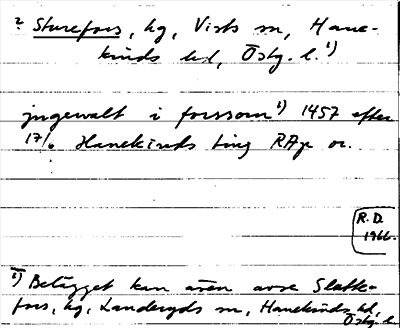 ? Sturefors, hg, Vists sn, Hane-
kinds hd, Östg. l. 1)
jngewalt i forssom 1) 1457 efter
17/6 Hanekinds ting RAp or.
R.D.
1966.
1) Belägget kan även avse Slatte-
fors, hg, Landeryds sn, Hanekinds hd,
Östg. l.